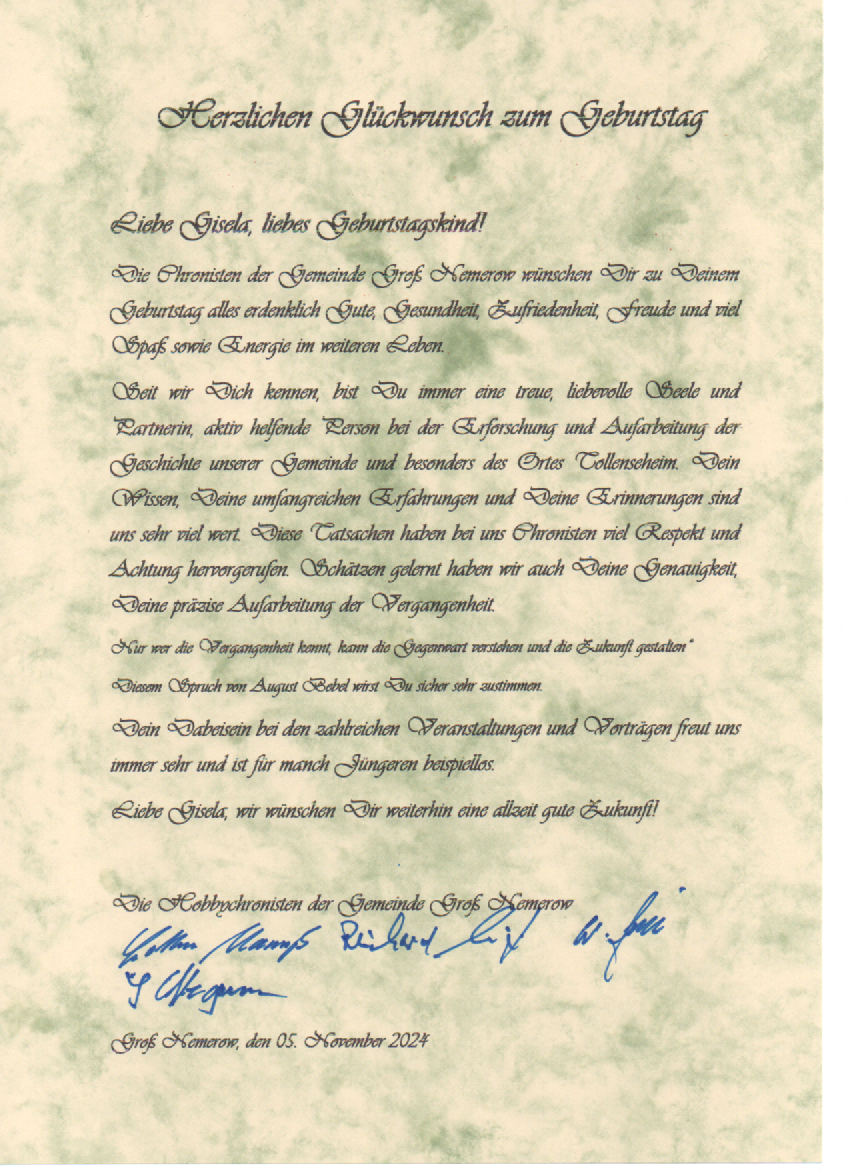 Herzlichen Glückwunsch zum Geburtstag
Liebe Gisela, liebes Geburtstagskind!
Die Chronisten der Gemeinde Groß Nemerow wünschen Dir zu Deinem
Geburtstag alles erdenklich Gute, Gesundheit, Zufriedenheit, Freude und viel
Spaß sowie Energie im weiteren Leben.
Seit wir Dich kennen, bist Du immer eine treue, liebevolle Seele und
Partnerin, aktiv helfende Person bei der Erforschung und Aufarbeitung der
Geschichte unserer Gemeinde und besonders des Ortes Tollenseheim. Dein
Wissen, Deine umfangreichen Erfahrungen und Deine Erinnerungen sind
uns sehr viel wert. Diese Tatsachen haben bei uns Chronisten viel Respekt und
Achtung hervorgerufen. Schätzen gelernt haben wir auch Deine Genauigkeit,
Deine präzise Aufarbeitung der Vergangenheit.
Nur wer die Vergangenheit kennt, kann die Gegenwart verstehen und die Zukunft gestalten“
Diesem Spruch von August Bebel wirst Du sicher sehr zustimmen.
Dein Dabeisein bei den zahlreichen Veranstaltungen und Vorträgen freut uns
immer sehr und ist für manch Jüngeren beispiellos.
Liebe Gisela, wir wünschen Dir weiterhin eine allzeit gute Zukunft!
Die Hobbychronisten der Gemeinde Groß Nemerow
Reinhard
Groß Nemerow, den 05. November 2024